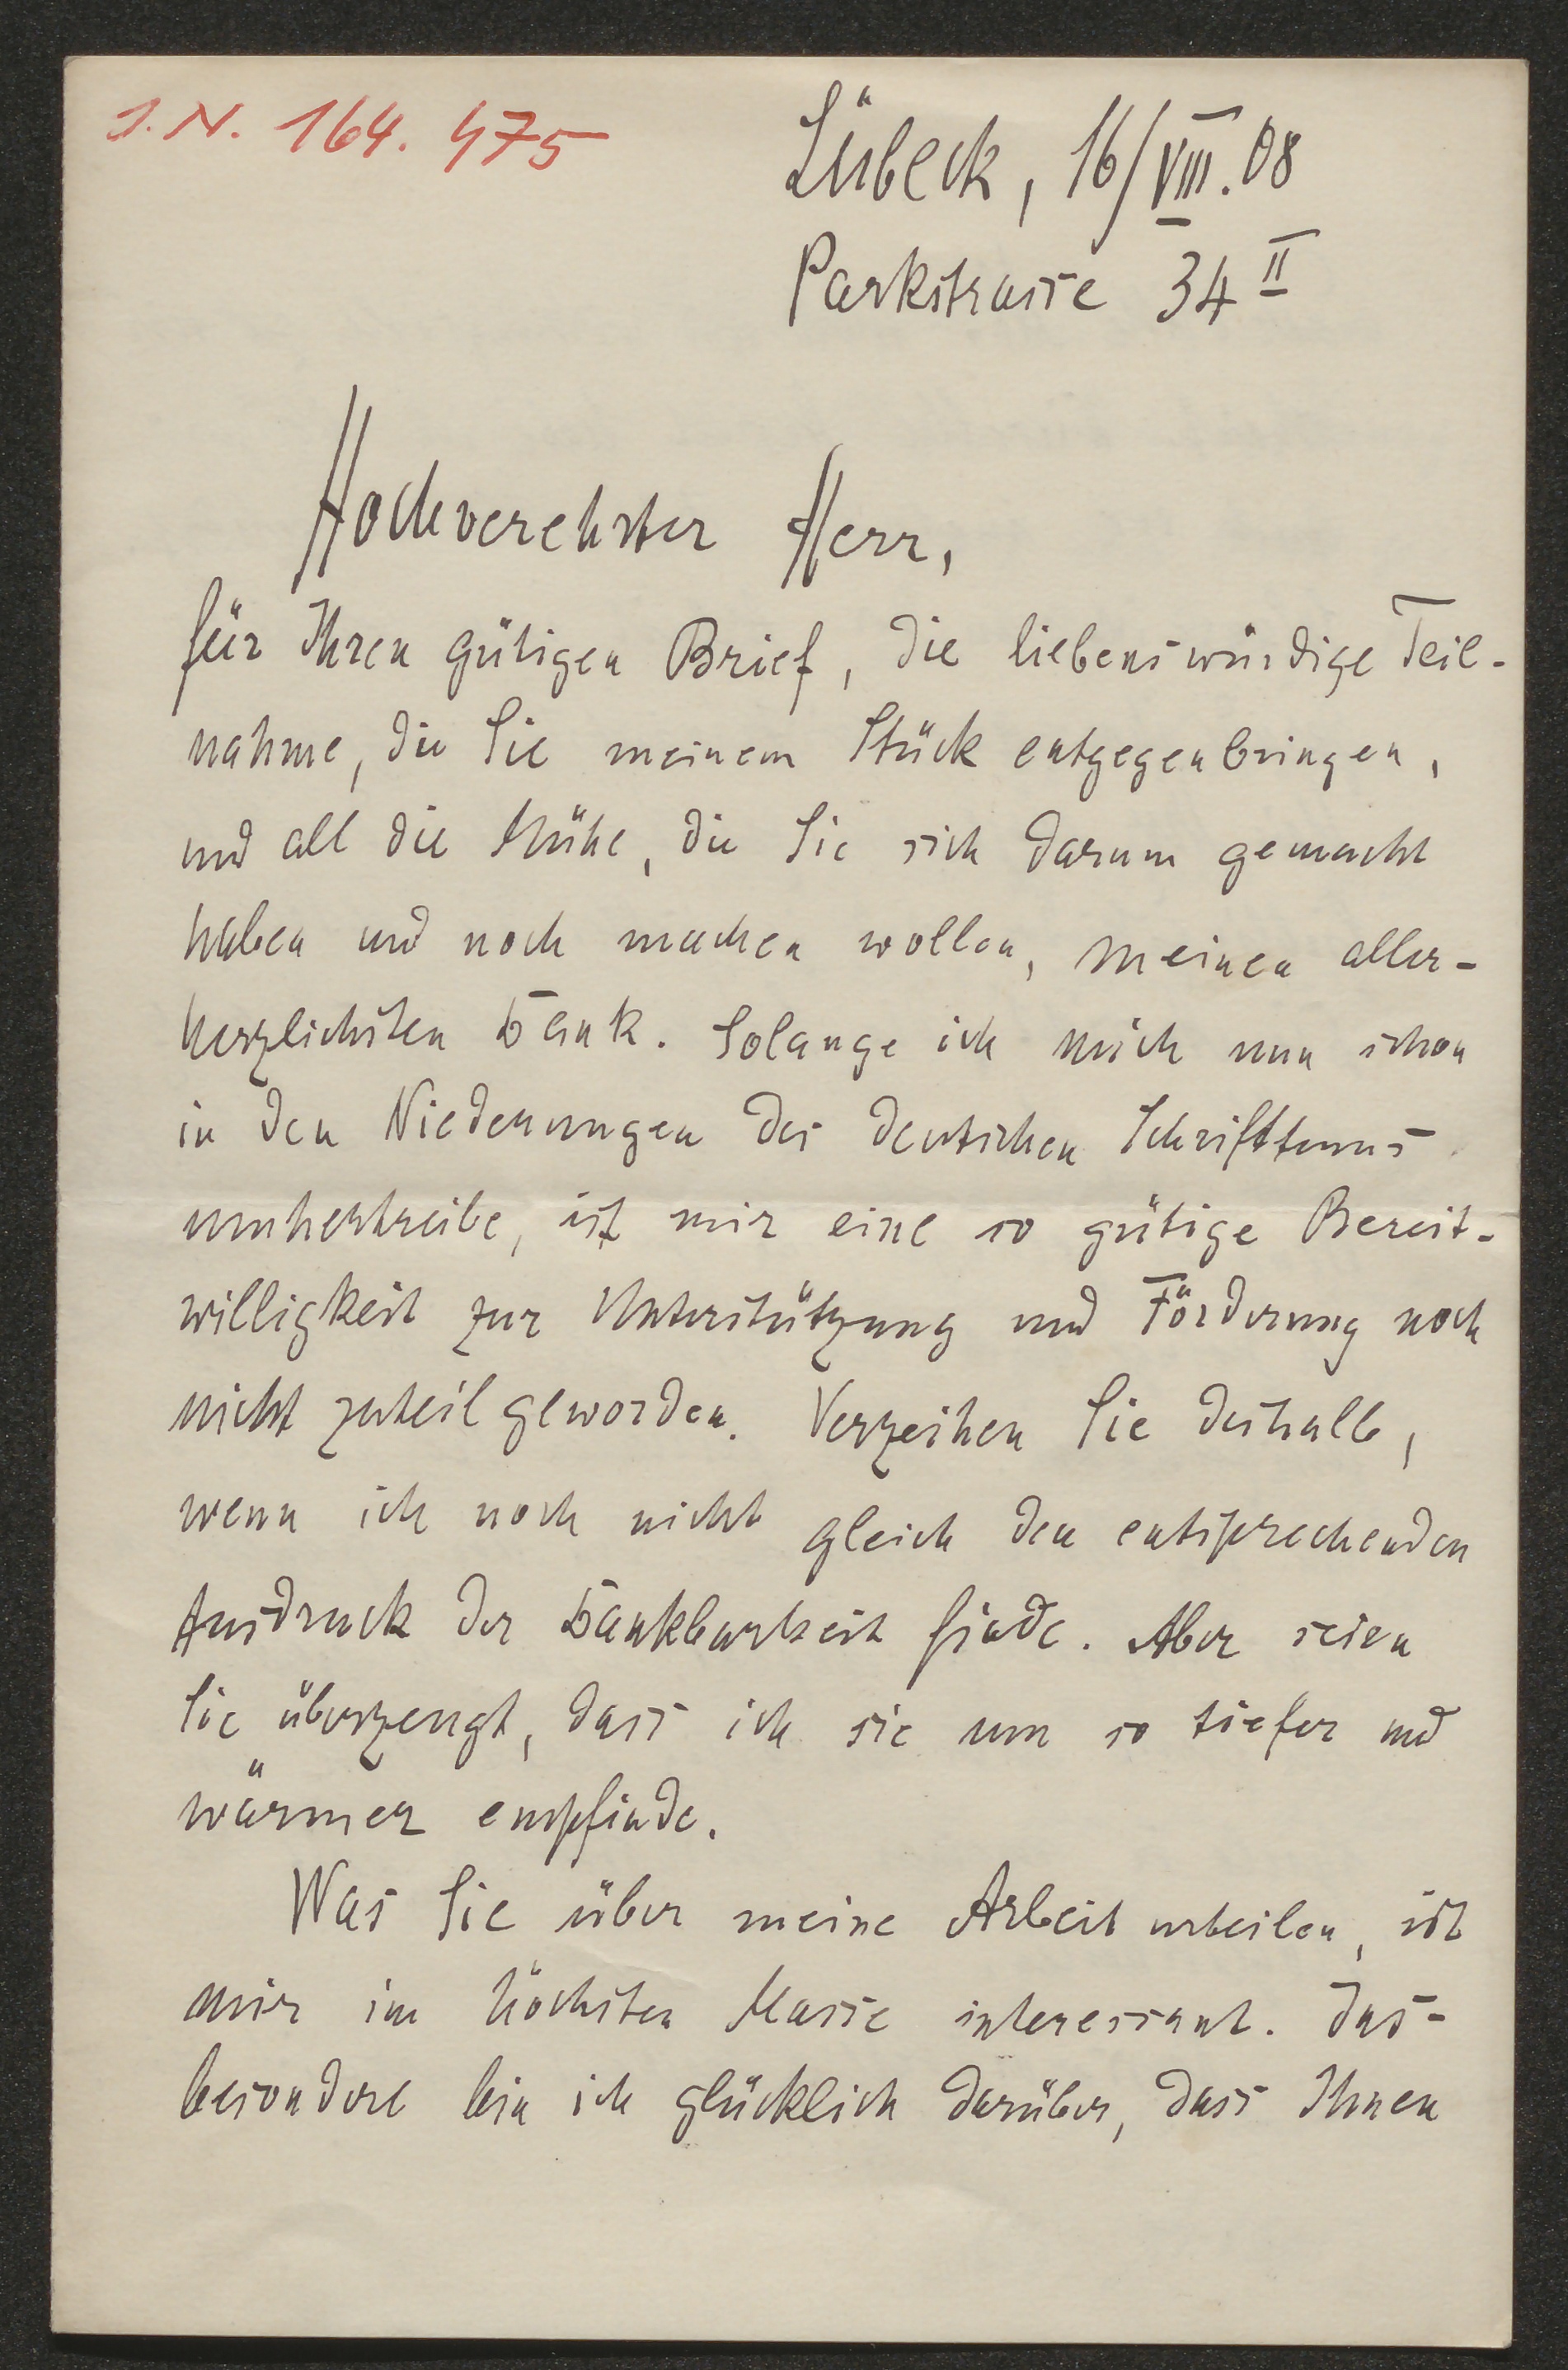 J. N. 164.475
Lübeck, 16/VIII.08
Parkstrasse 34 II
Hochverehrter Herr,
für Ihren gütigen Brief, die liebenswürdige Teil-
nahme, die Sie meinem Stück entgegenbringen,
und all die Mühe, die Sie sich darum gemacht
haben und noch machen wollen, meinen aller-
herzlichsten Dank. Solange ich mich nun schon
in den Niederungen des deutschen Schrifttums
umhertreibe, ist mir eine so gütige Bereit-
willigkeit zur Unterstützung und Förderung noch
nicht zuteil geworden. Verzeihen Sie deshalb,
wenn ich noch nicht gleich den entsprechenden
Ausdruck der Dankbarkeit finde. Aber seien
Sie überzeugt, dass ich sie um so tiefer und
wärmer empfinde.
Was Sie über meine Arbeit urteilen, ist
mir im höchsten Masse interessant. Ins-
besondere bin ich glücklich darüber, dass Ihnen